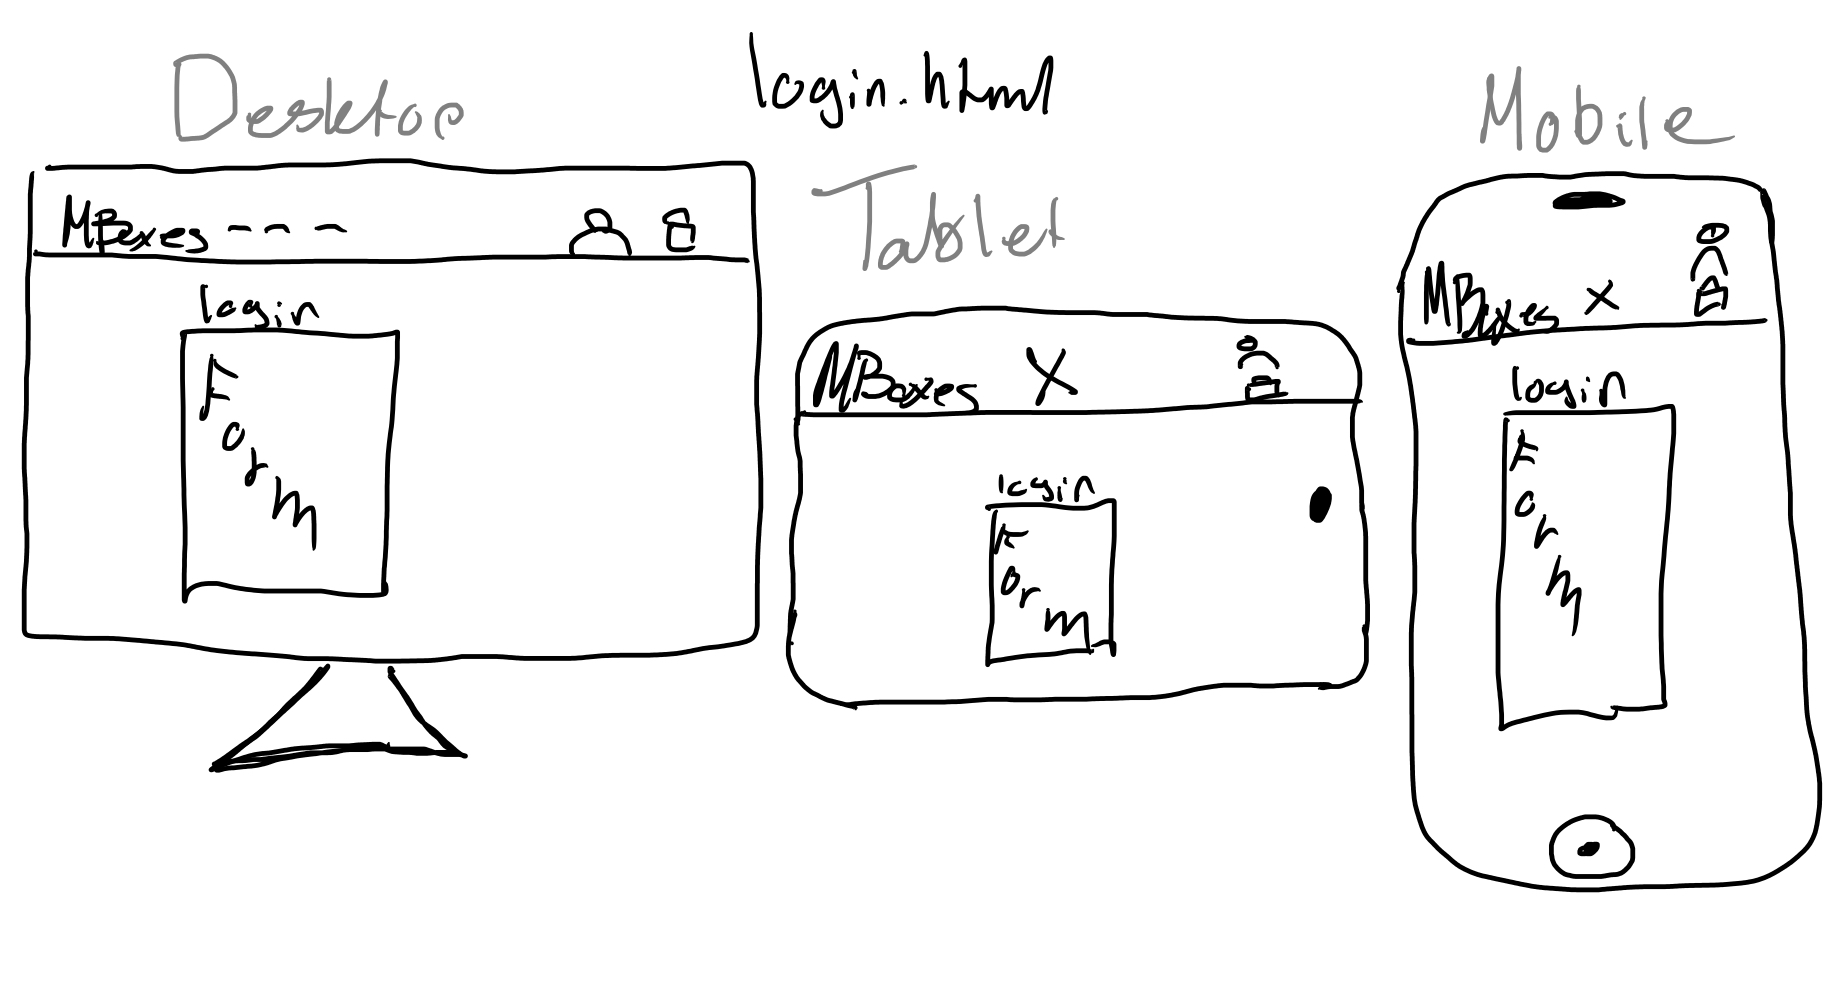 login.html
Desktop
MBoxes - - -
login
Form
Tablet
MBoxes X
login
Form
Mobile
MBoxes X
login
Form